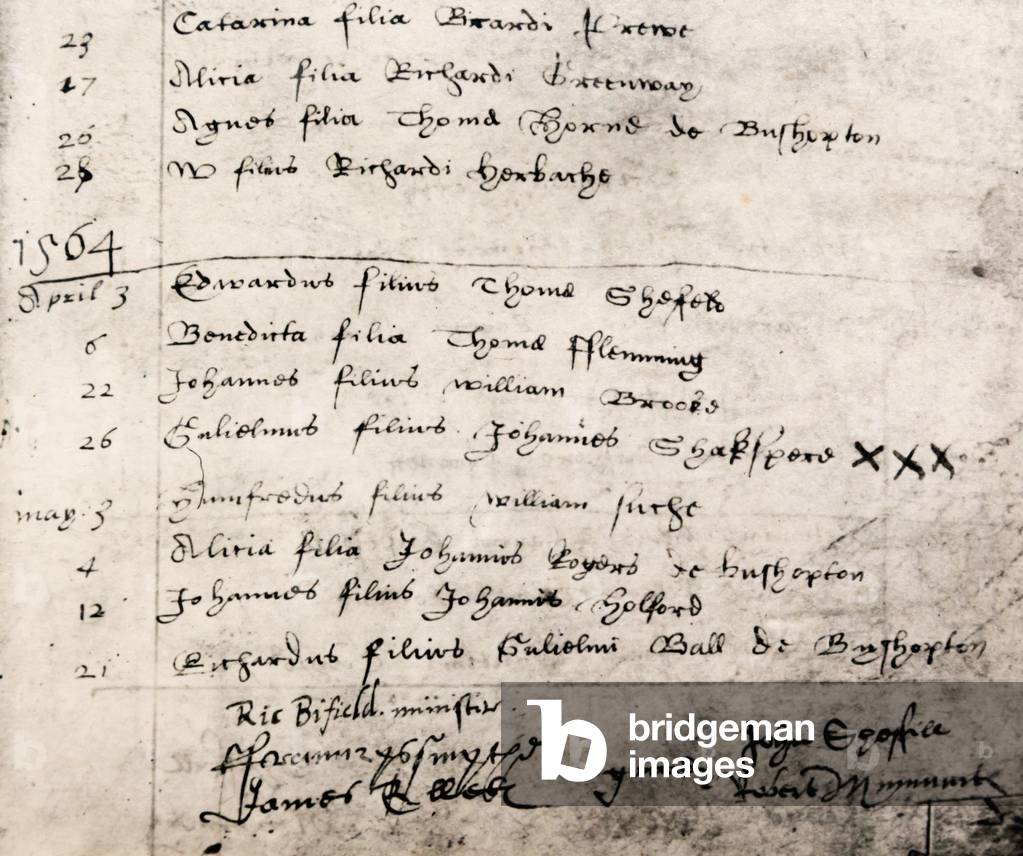 23 Catarina filia Ricardi
17 Alicia filia Richardi Greenway
26 Agnes filia Thomæ Horne de Bushopton
28 W filius Richardi Herbache
1564
April 3 Edwardus filius Thomæ Shefeld
6 Benedicta filia Thomæ fflemming
22 Johannes filius William Brooke
26 Gulielmus filius Johannes Shakspere XXX
may 3 Humfredus filius William
4 Alicia filia Johannis Rogers de bushopton
12 Johannes filius Johannis Holford
21 Richardus filius Gulielmi Ball de Byshopton
Ric Bifield minister
James
bridgeman
images